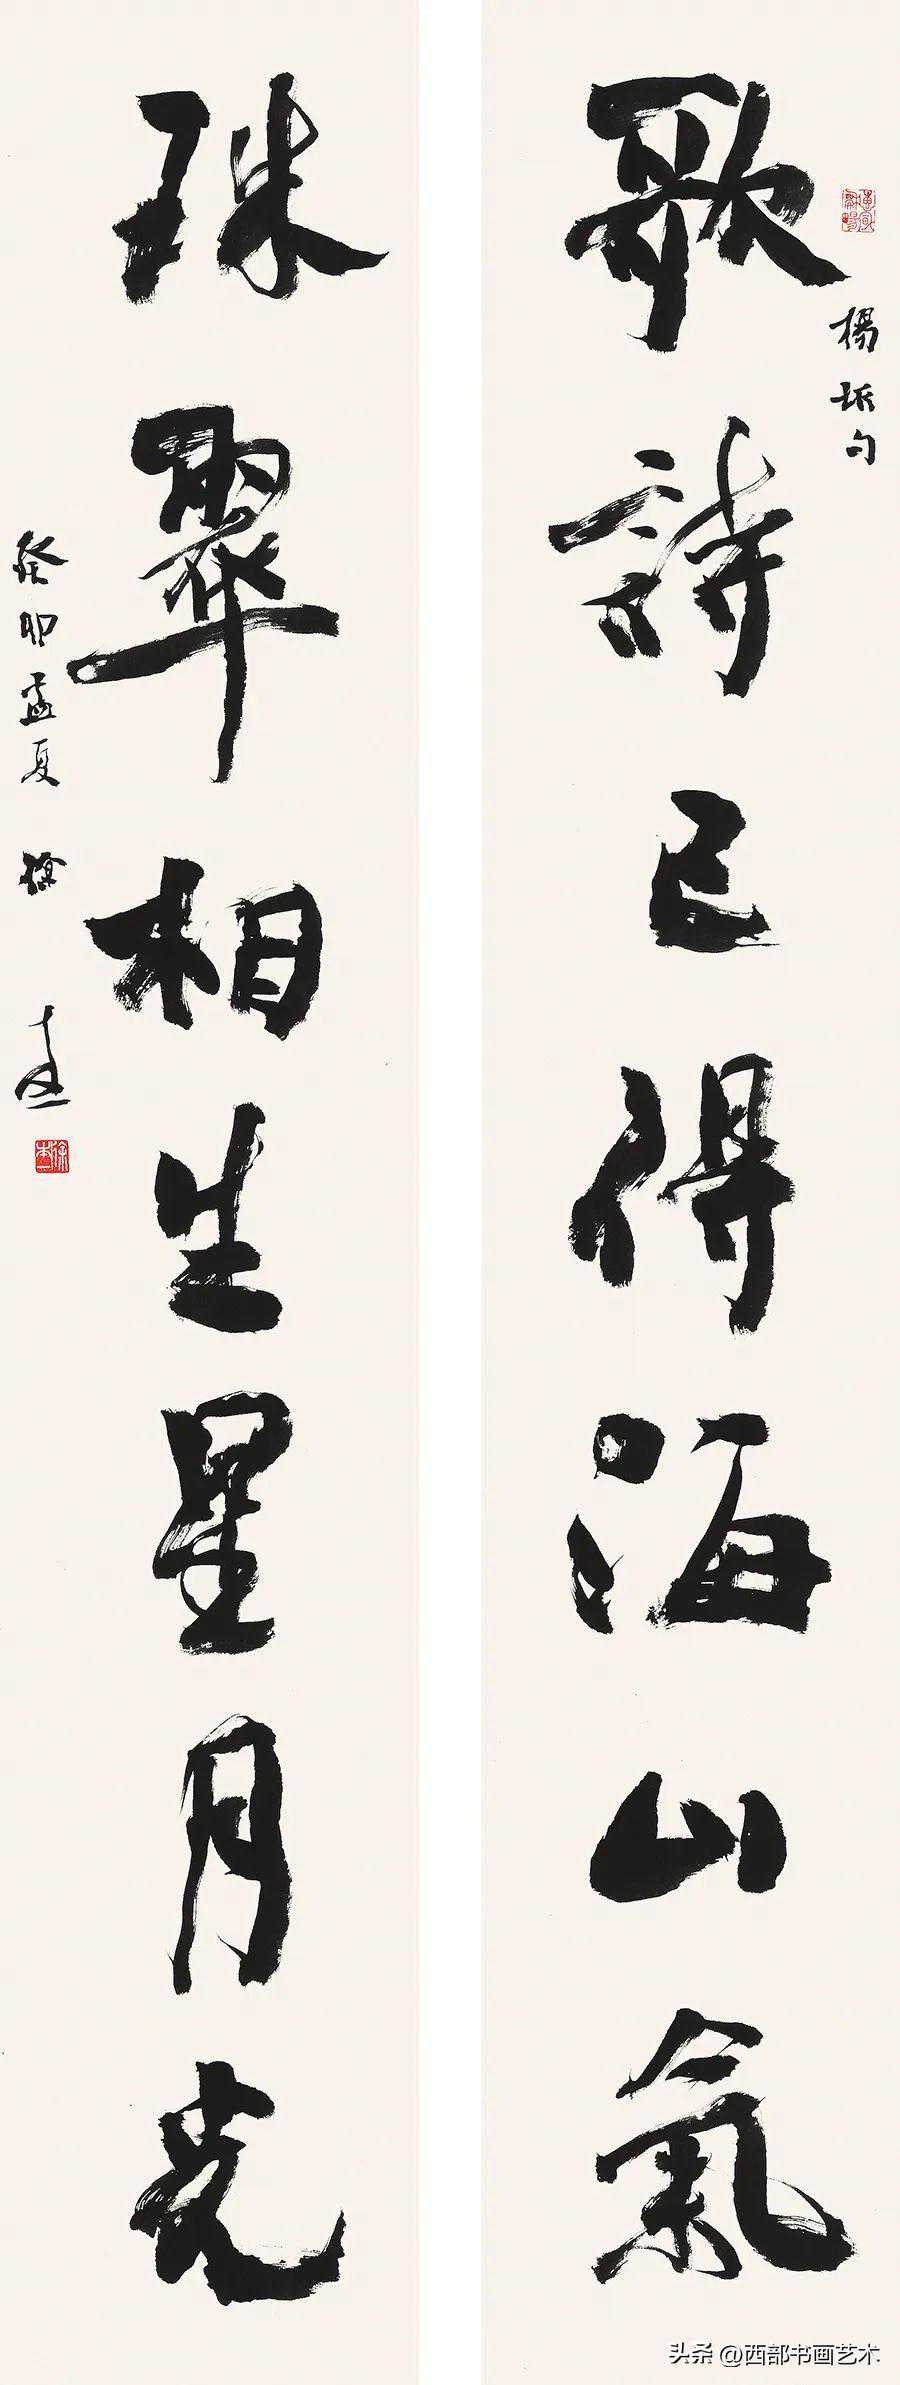 楊圻句
歌詩已得海山氣
珠翠相生星月光
癸卯孟夏 徐本一
徐本一
头条 @西部书画艺术